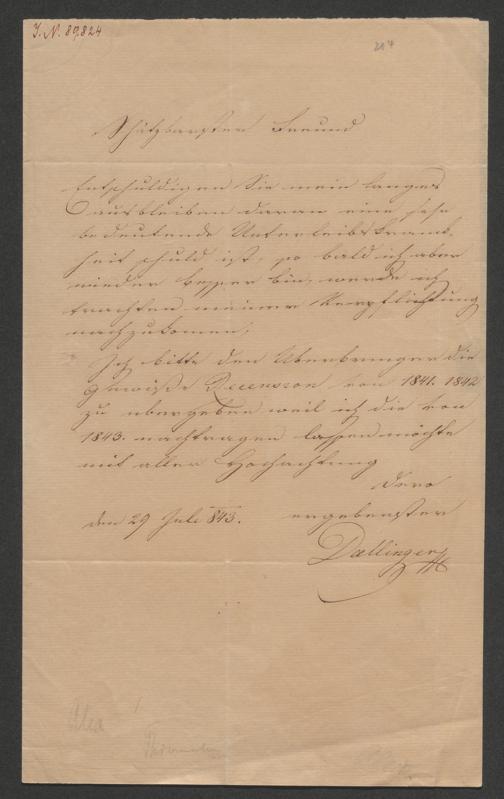 I. N. 89.824
Schätzbarster Freund
Entschuldigen Sie mein langes
ausbleiben daran eine sehr
bedeutende Unterleibskrank-
heit schuld ist, so bald ich aber
wieder besser bin, werde ich
trachten meiner Verpflichtung
nachzukomen;
Ich bitte den Uberbringer die
Recension von 1841. 1842
zu ubergeben weil ich die von
1843. nachtragen lassen möchte
mit aller Hochachtung
Dero
den 29 Juli 843. ergebenster
Dollinger